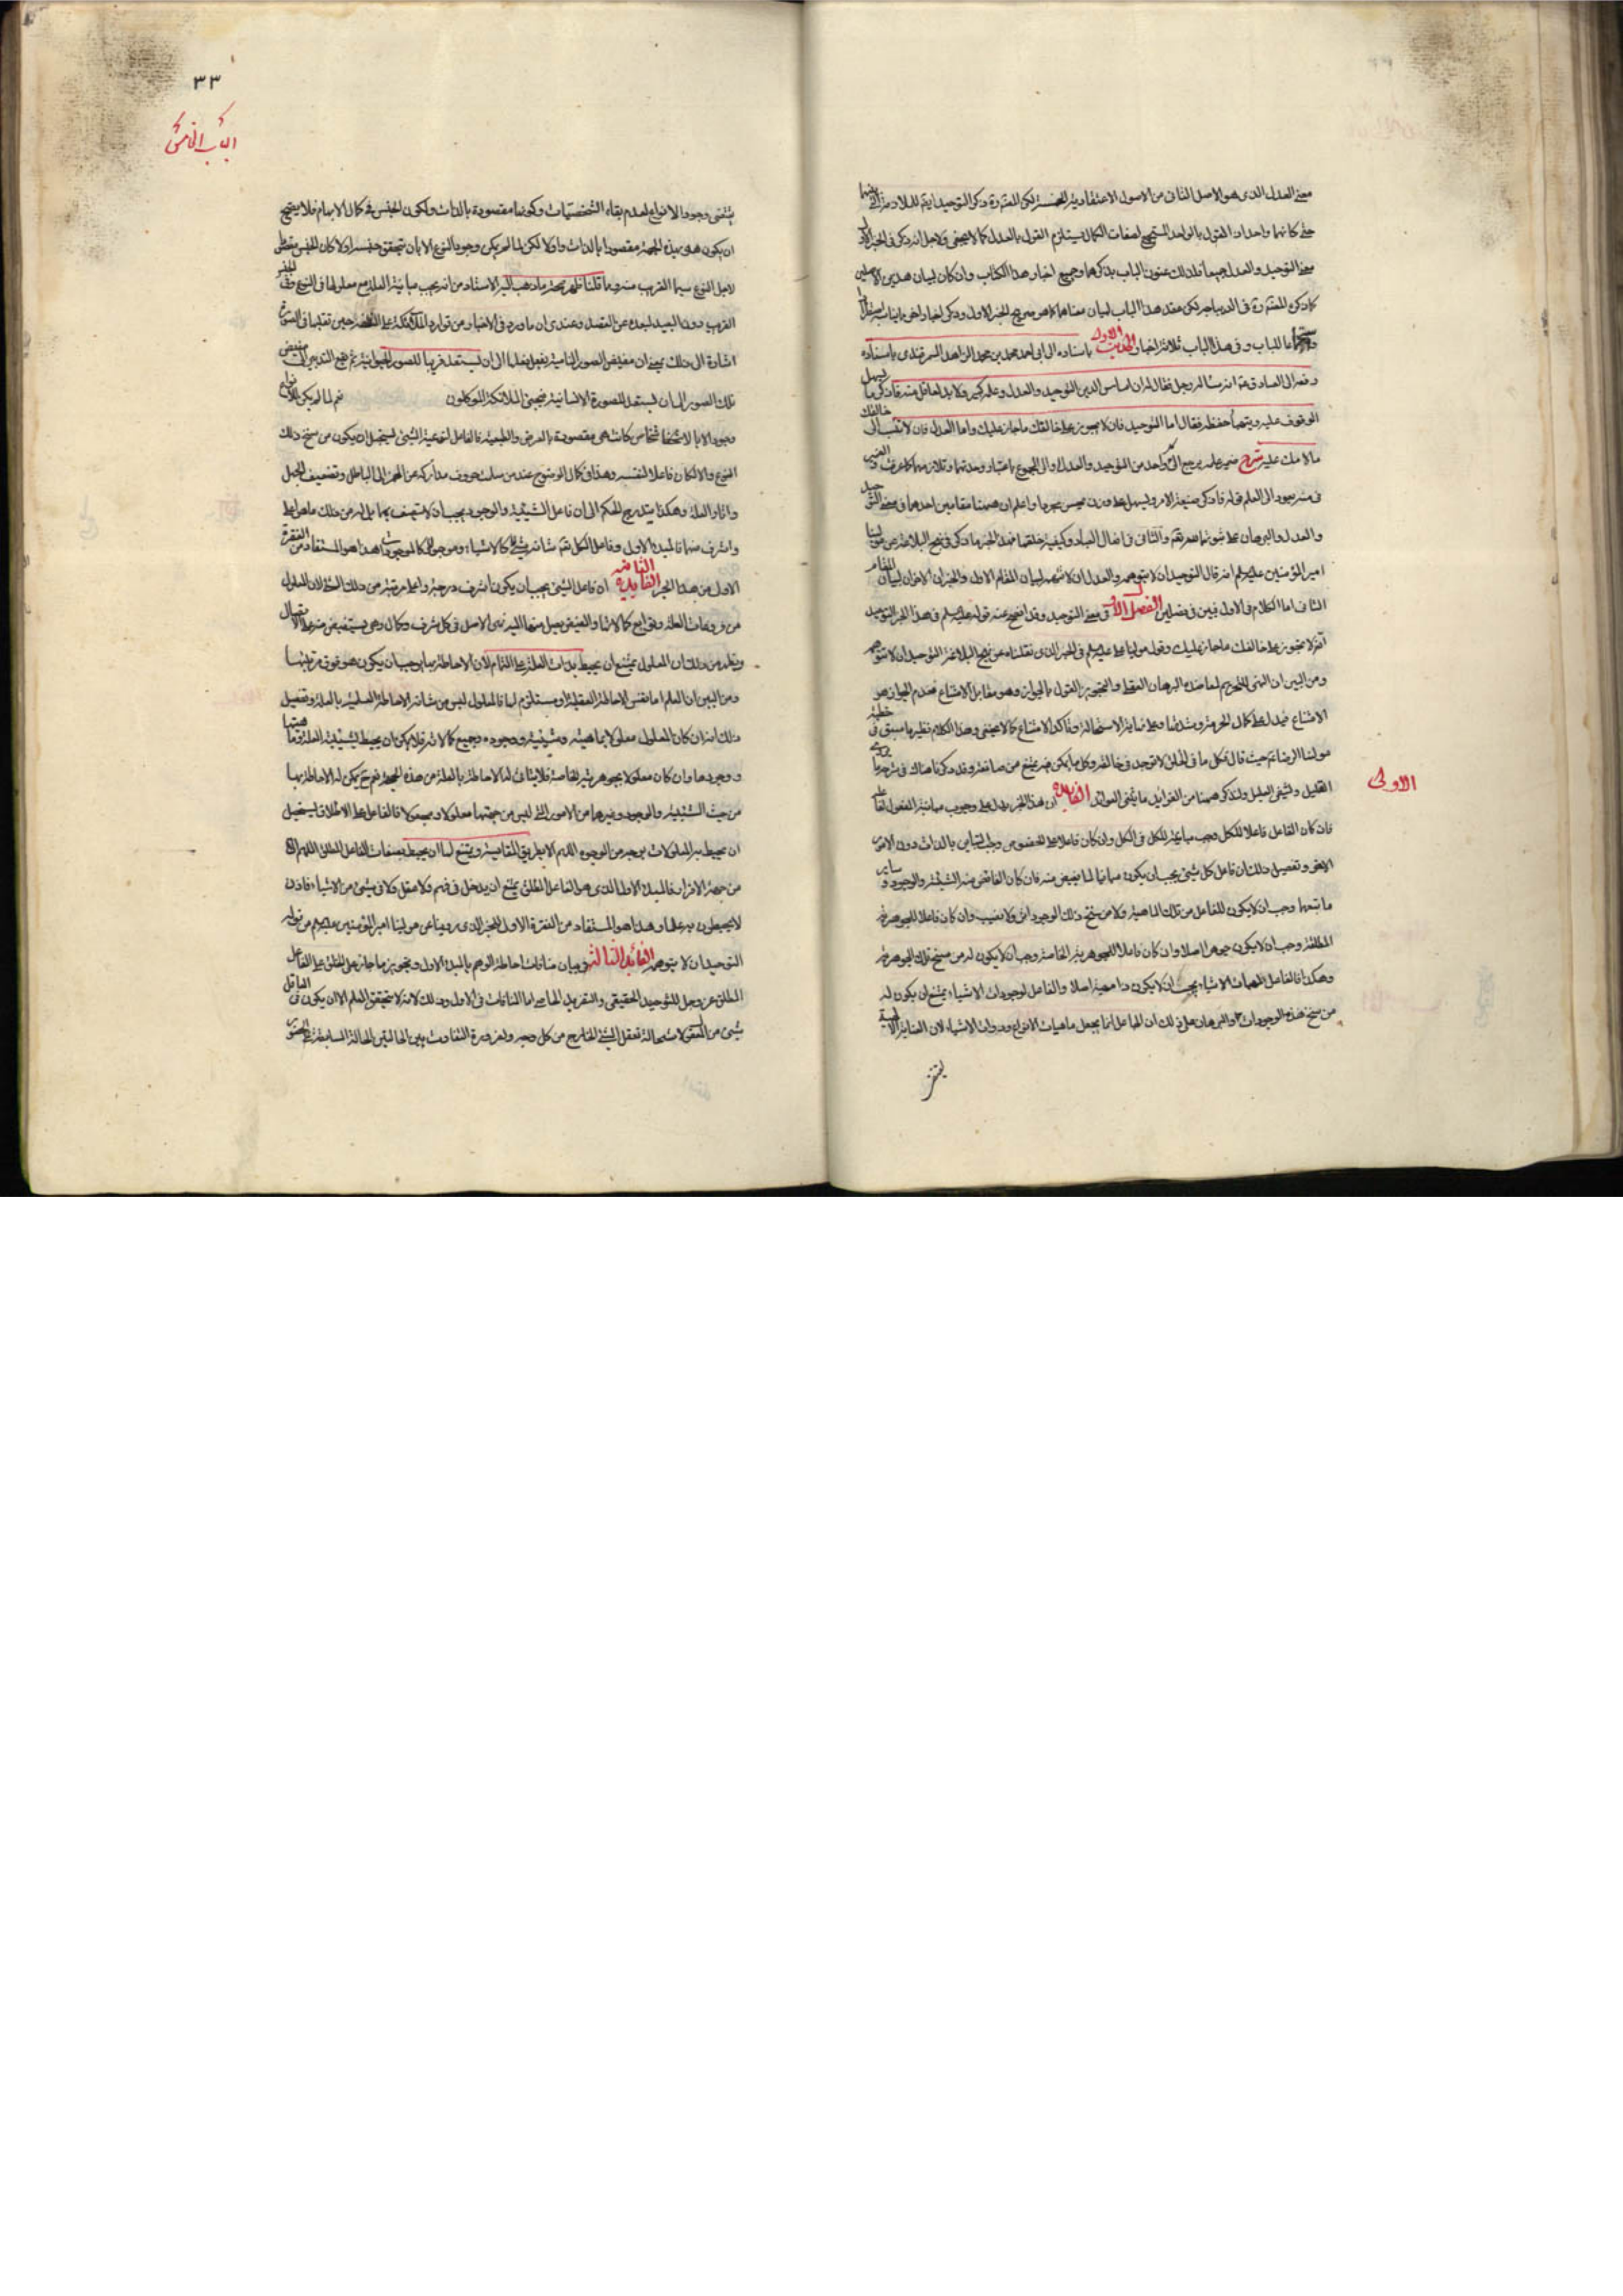 معنى العدل الذى هو الاصل الثانى من الاصول الاعتقادية لكن المصنف ذكر التوحيد
القول بالواحد المستجمع لصفات الكمال يستلزم القول بالعدل كما لا يخفى ولاجل انه ذكر فى الخبر الاول
معنى التوحيد والعدل جميعا فلذلك عنون الباب بذكرهما وجميع اخبار هذا الكتاب وان كان لبيان هذين الاصلين
كما ذكره المصنف فى الديباجة لكن عقد هذا الباب لبيان معناهما كما هو صريح الخبر الاول وذكر اخبار اخر
للباب وفى هذا الباب ثلاثة اخبار الحديث الاول باسناده الى ابى احمد محمد بن محمد الزاهد السمرقندى باسناده
رفعه الى الصادق انه سأله رجل فقال له ان اساس الدين التوحيد والعدل وعلمه كثير ولا بد لعاقل منه فاذكر ما يسهل
الوقوف عليه ويتهيأ حفظه فقال اما التوحيد فان لا تجوز على خالقك ما جاز عليك واما العدل فان لا تنسب الى خالقك
ما لامك عليه شرح ضمير علمه يرجع الى كل واحد من التوحيد والعدل والى المجموع باعتبار وحدتهما
فى منه يعود الى العلم قوله فاذكر صيغة الامر ويسهل على وزن يحسن واعلم ان ههنا مقامين احدهما فى معنى التوحيد
والعدل والبرهان على ثبوتهما والثانى فى افعال العباد وكيفية خلقها فهذا الخبر وما ذكر فى نهج البلاغة عن مولينا
امير المؤمنين عليه السلام انه قال التوحيد ان لا تتوهمه والعدل ان لا تتهمه لبيان المقام الاول والخبران الاخران لبيان المقام
الثانى اما الكلام فى الاول فبين فى فصلين الفصل الاول فى معنى التوحيد وقد افصح عنه قوله عليه السلام فى هذا الخبر التوحيد
ان لا تجوز على خالقك ما جاز عليك وقول مولينا على عليه السلام فى الخبر الذى نقلناه عن نهج البلاغة التوحيد ان لا تتوهمه
ومن البين ان النهى للتحريم
الامتناع فيدل على كمال الحرمة كما لا يخفى وهذا الكلام نظير ما سبق فى خطبة
مولينا الرضا حيث قال فكل ما فى الخلق لا يوجد فى خالقه وكل ما يمكن فيه يمتنع من صانعه وقد ذكرنا هناك فى شرحه ما يروى
الغليل ويشفى العليل ولنذكر ههنا من الفرائد الفايدة الاولى ان هذا الخبر يدل على وجوب مباينة المفعول لفاعله
فان كان الفاعل فاعلا للكل وجب مباينته للكل فى الكل وان كان فاعلا على الخصوص وجب التباين بالذات دون الامر
الاعم وتفصيل ذلك ان فاعل كل شىء يجب ان يكون مباينا لما يفيض منه فان كان الفائض منه الشيئية والوجود وساير
ما يتبعهما وجب ان لا يكون للفاعل من تلك الماهية ولا من سنخ ذلك الوجود اثر ولا نصيب وان كان فاعلا للجوهرية
المطلقة وجب ان لا يكون جوهرا اصلا وان كان فاعلا للجوهرية الخاصة وجب ان لا يكون له من سنخ تلك الجوهرية
وهكذا فالفاعل لمهيات الاشياء يجب ان لا يكون ذا مهية اصلا والفاعل لوجودات الاشياء يمتنع ان يكون له
من سنخ هذه الوجودات والبرهان على ذلك ان الجاعل انما يجعل ماهيات الانواع وذوات الاشياء لان العناية الالهية
الاولى
٣٣
الباب الخامس
يقتضى وجود الانواع لعدم بقاء الشخصيات وكونها مقصودة بالذات ولكون الجنس فى كمال الابهام فلا يصح
ان يكون هذه الجهة مقصودا بالذات واولا لكن لما لم يكن وجود النوع الا بان يتحقق جنسه اولا كان الجنس
لاجل النوع سيما القريب منه وما قلنا ظهر صحة ما ذهب اليه الاستاد من انه يجب مباينة العلة مع معلولها فى النوع وفى الجنس
القريب دون البعيد لبعده عن القصد وعندى ان ما ورد فى الاخبار من توارد الملائكة على النطفة حين تقلبها فى الصور
اشارة الى ذلك بمعنى ان مفيض الصور النامية يفعل فعلها الى ان يستعد قريبا للصورة الحيوانية ثم يقع التدبير الى مفيض
تلك الصور الى ان يستعد للصورة الانسانية فيجىء الملائكة الموكلون ثم لما لم يكن للانواع
وجود الا بالاشخاص كانت هى مقصودة بالعرض والطبيعة فالفاعل لنوعية الشىء يستحيل ان يكون من سنخ ذلك
النوع والا لكان فاعلا لنفسه وهذا فى كمال الوضوح عند من سلك
وهكذا يتدرج الحكم الى ان فاعل الشيئية والوجود يجب ان لا يتصف بهما بل له من ذلك ما هو اعلى
واشرف منهما فالمبدء الاول وفاعل الكل شىء لا كالاشياء وموجود لا كالموجودات هذا هو المستفاد من الفقرة
الاولى من هذا الخبر الفايدة الثانية ان فاعل الشىء يجب ان يكون اشرف درجة واعلى مرتبة من ذلك الشىء لان المعلول
من رشحات العلة وتوابع كالاثار والفيض يصل منها اليه فهى الاصل فى كل شرف وكمال وهى يستفيض منه على الاتصال
ويظهر من ذلك ان المعلول يمتنع ان يحيط بذات العلة على التمام لان الاحاطة يوجب ان يكون هو فوق مرتبتها
ومن البين ان العلم اما نفس الاحاطة العقلية او مستلزم لها فالمعلول ليس من شانه الاحاطة العلمية بالعلة وتفصيل
ذلك انه ان كان المعلول معلولا بماهيته وشيئيته ووجوده وجميع كمالاته فلا يمكن ان يحيط بشيئية العلة وماهيتها
ووجودها وان كان معلولا بجوهريته الخاصة فلا يتأتى له الاحاطة بالعلة من هذه الجهة نعم يمكن له الاحاطة بها
من حيث الشيئية والوجود وغيرهما من الامور التى ليس من جهتها معلولا ومجعولا فالفاعل على الاطلاق يستحيل
ان يحيط به المعلولات بوجه من الوجوه اللهم الا بطريق المقايسة ويمتنع لها ان يحيط بصفات الفاعل المطلق اللهم الا
من جهة الاقرار فالمبدء الاول الذى هو الفاعل المطلق يمتنع ان يدخل فى فهم ولا عقل ولا فى شىء من الاشياء فاذن
لا يحيطون به علما وهذا هو المستفاد من الفقرة الاولى للخبر الذى روينا عن مولينا امير المؤمنين عليه السلام من قوله
التوحيد ان لا تتوهمه الفائدة الثالثة فى بيان منافات احاطة الوهم بالمبدء الاول وتجويز ما جاز على الخلق على الفاعل
المطلق عز وجل للتوحيد الحقيقى والتفريد الخاصى اما المنافات فى الاول وذلك لانه لا يتحقق العلم الا ان يكون فى العاقل
شىء من المعقول لاستحالة تعقل الشىء الخارج من كل وجه ولضرورة التفاوت بين الحالتين الحالة السابقة